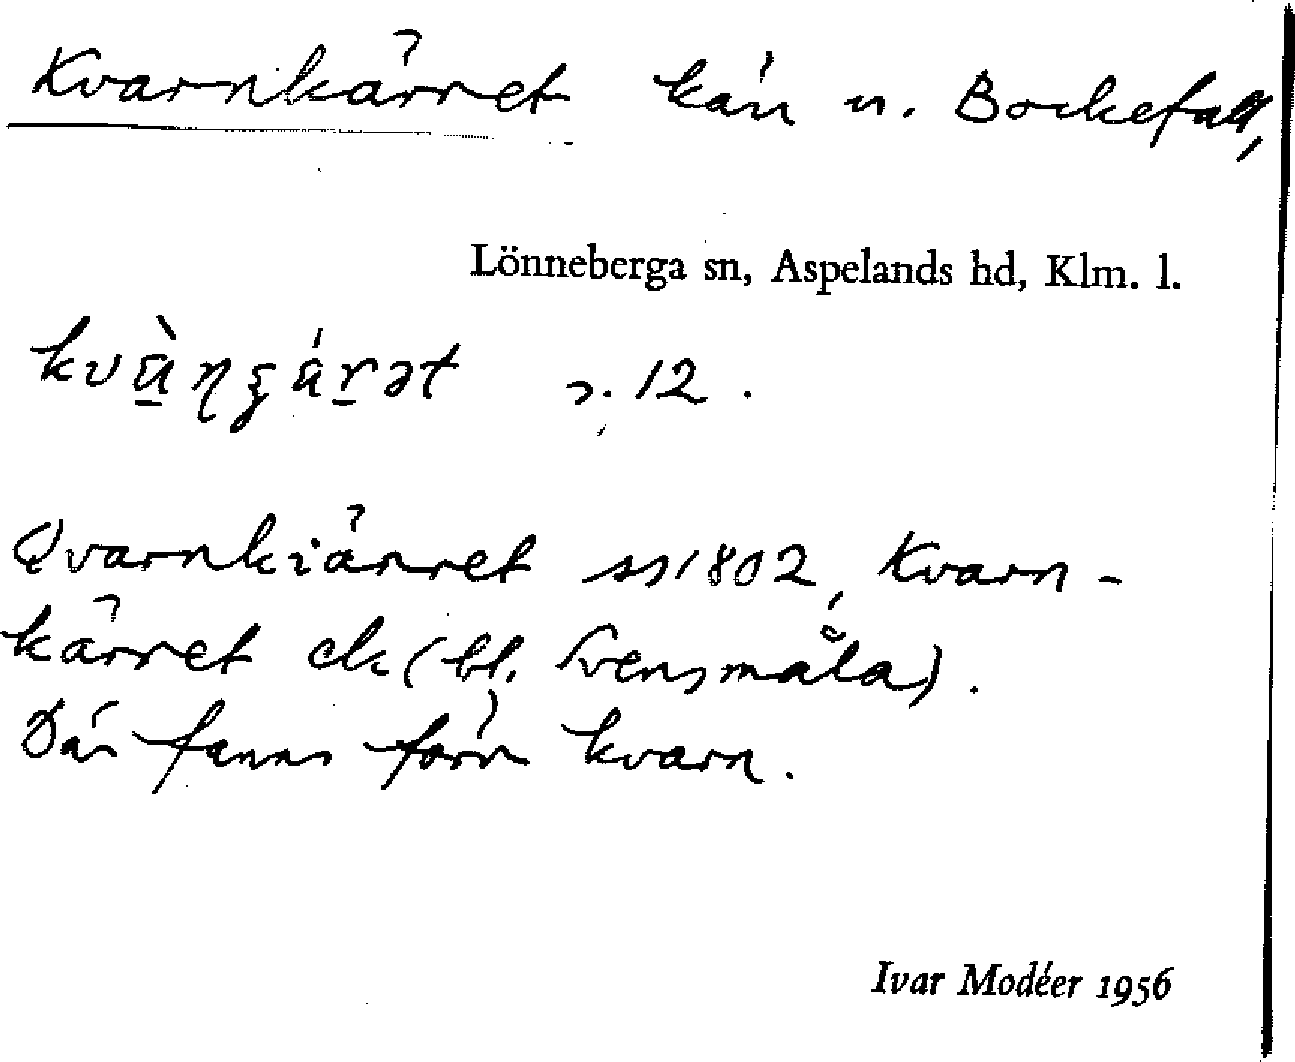 Kvarnkärret kärr n. Bockefall,
Lönneberga sn, Aspelands hd, Klm. l.
s. 12.
Qvarnkiärret 1802, Kvarn-
kärret ek (bl. Svensmåla).
Där fanns förr kvarn.
Ivar Modéer 1956